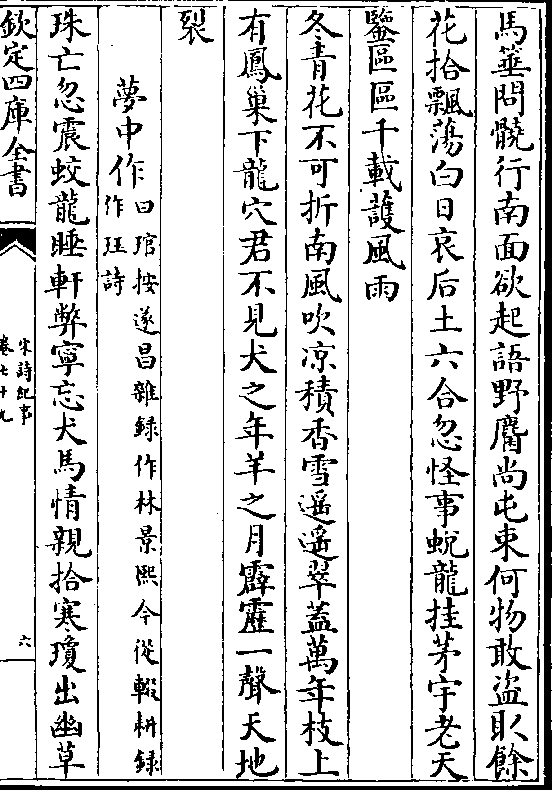 馬箠問髐行南面欲起語野麕尚屯東何物敢盜取餘
花拾飄蕩白日哀后土六合忽怪事蛻龍挂茅宇老天
鑒區區千載護風雨
冬青花不可折南風吹凉積香雪遥遥翠蓋萬年枝上
有鳳巢下龍穴君不見犬之年羊之月霹靂一聲天地
裂
夢中作曰琯按遂昌雜録作林景熙今從輟耕録
作珏詩
珠亡忽震蛟龍睡軒弊寧忘犬馬情親拾寒瓊出幽草
欽定四庫全書
宋詩紀事
卷七十九
六